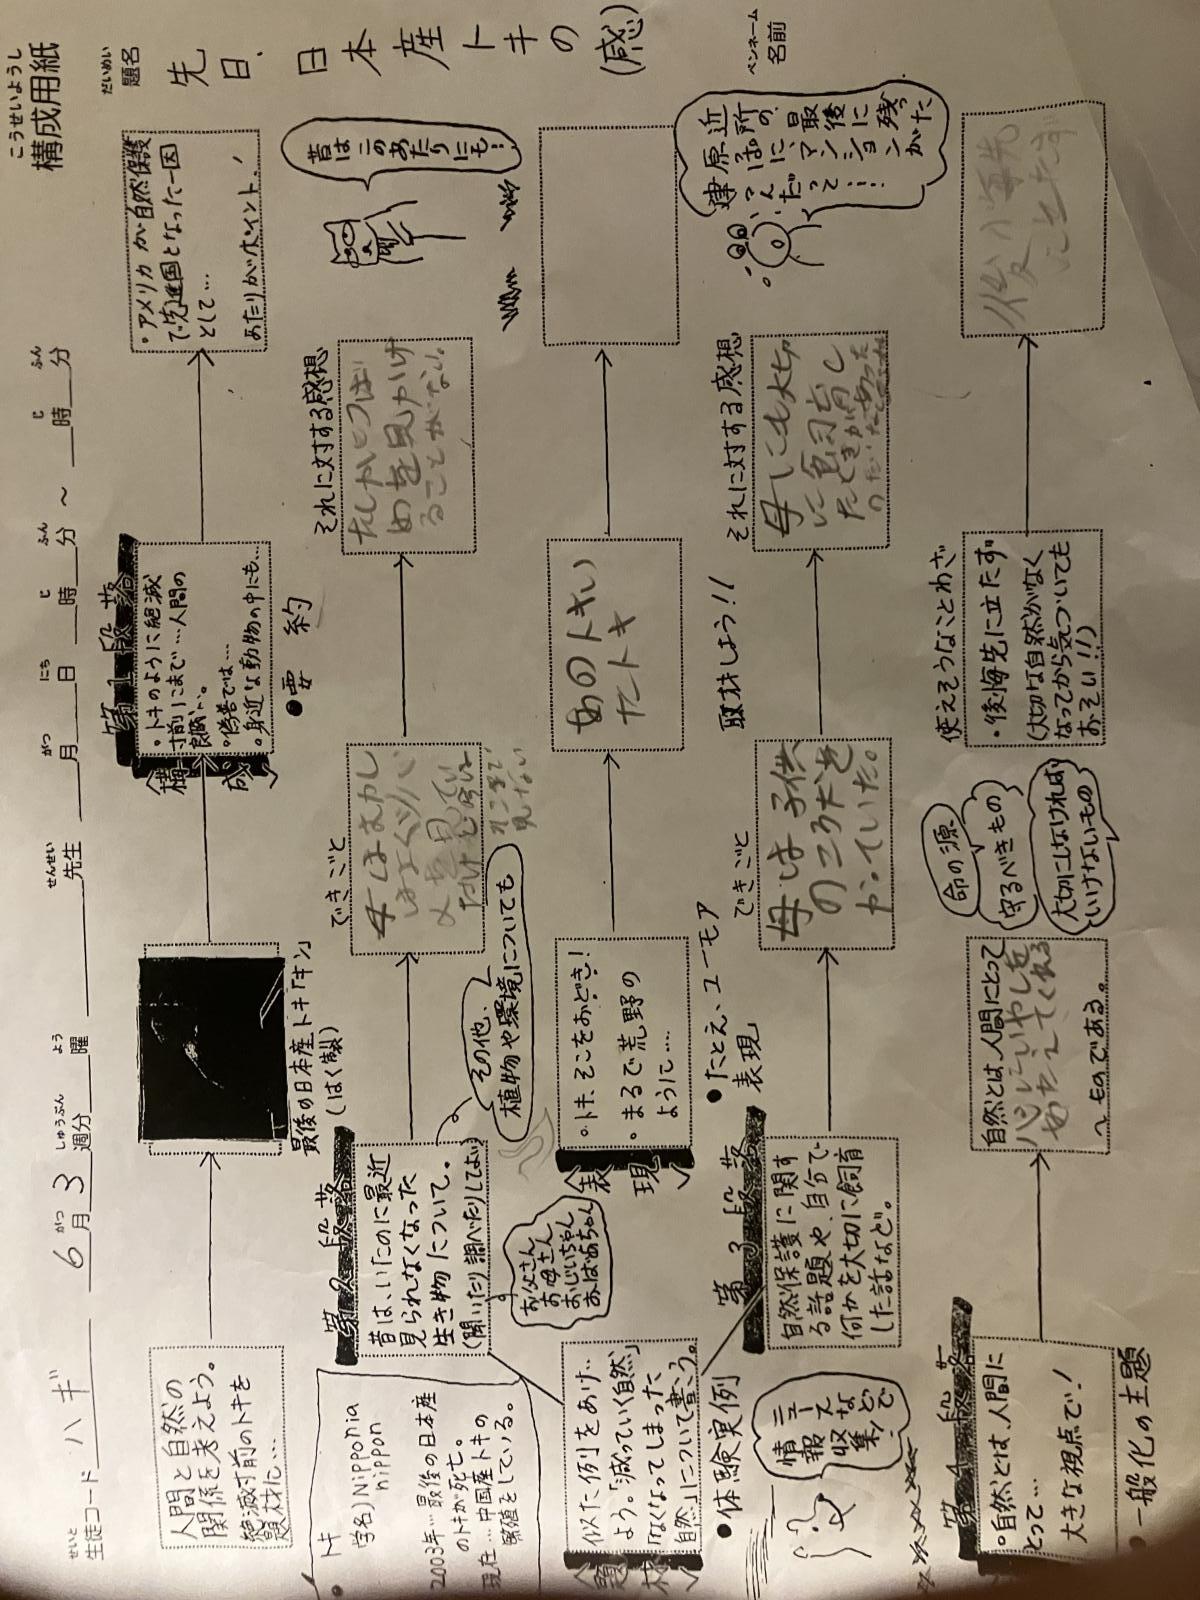 こうせいようし
構成用紙
せいと
生徒コード ハギ 6月3週分 曜 先生 月 日 時 分 ～ 時 分
がつ しゅうぶん よう せんせい がつ にち じ ふん じ ふん
だいめい
題名
先日、日本産トキの(感)
ペンネーム
名前
人間と自然の
関係を考えよう。
絶滅寸前のトキを
題材に…
最後の日本産トキ「キン」
(はく製)
〈構成〉
第1段落
・トキのように絶滅
寸前にまで…人間の
・偽善では…
・身近な動物の中にも…
●要約
・アメリカが自然保護
で先進国となった一因
として…
あたりがポイント!
●トキ
学名)Nipponia
nippon
2003年…最後の日本産
のトキが死亡。
現在…中国産トキの
繁殖をしている。
第2段落
昔は、いたのに最近
見られなくなった
生き物について。
(聞いたり調べたりしてよい)
お父さん
お母さん
おじいちゃん
おばあちゃん
その他、
植物や環境についても
できごと
母はむかし
はよくツバ
メを見てい
たけど今は
そこまで
見ない
それに対する感想
たしかにつば
めを見かけ
ることがない。
昔はこのあたりにも…
〈題材〉
似た例をあげ…
よう。「減っていく自然」
「なくなってしまった
自然」について書こう。
●体験実例
〈表現〉
・トキ、そこをおどき!
・まるで荒野の
ように……
●たとえ、ユーモア
表現
あのトキい
たトキ
取材しよう!!
情報
ニュース
収集
などで
第3段落
自然保護に関す
る話題や、自分で
何かを大切に飼育
した話など。
できごと
母は子供
のころ犬を
かっていた。
それに対する感想
母にも大切
に飼育し
たときがあった
近所の、最後に残った
原っぱに、マンションが
建つんだって……
第4段落
・自然とは、人間に
とって…
大きな視点で!
●一般化の主題
自然とは、人間にとって
～ものである。
命の源
守るべきもの
大切にしなければ
いけないもの
使えそうなことわざ
・後悔先に立たず
(大切な自然がなく
なってから気づいても
おそい!!)
後悔先
に立たず